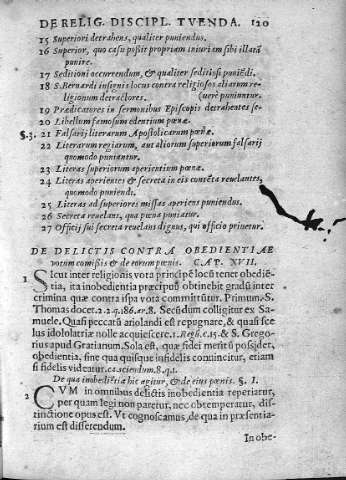 DE RELIG. DISCIPL. TVENDA. 120
15 Superiori detrahens, qualiter puniendus.
16 Superior, quo casu possit propriam iniuriam sibi illatã
punire.
17 Seditioni occurrendum, & qualiter seditiosi puniẽdi.
18 S. Bernardi insignis locus contra religiosos aliarum re-
ligionum detractores. (uerè puniuntur.
19 Prædicatores in sermonibus Episcopis detrahentes se-
20 Libellum famosum edentium pœnæ.
§.3. 21 Falsarij literarum Apostolicarum pœnæ.
22 Literarum regiarum, aut aliorum superiorum falsarij
quomodo puniantur.
23 Literas superiorum aperientium pœnæ.
24 Literas aperientes & secreta in eis contẽta reuelantes,
quomodo puniendi.
25 Literas ad superiores missas aperiens puniendus.
26 Secreta reuelans, qua pœna puniatur.
27 Officij sui secreta reuelans dignus, qui officio priuetur.
DE DELICTIS CONTRA OBEDIENTIAE
votum comissis & de eorum pœnis. CAP. XVII.
1 SIcut inter religionis vota principẽ locũ tenet obediẽ-
tia, ita inobedientia præcipuũ obtinebit gradũ inter
crimina quæ contra ispa vota committũtur. Primum. S.
Thomas docet. 2.2.q.186.ar.8. Secũdum colligitur ex Sa-
muele. Quasi peccatũ ariolandi est repugnare, & quasi sce
lus idololatriæ nolle acquiescere. 1. Regũ. c. 15. & S. Grego-
rius apud Gratianum. Sola est, quæ fidei meritũ possidet,
obedientia, sine qua quisque infidelis conuincitur, etiam
si fidelis videatur. ca. sciendum. 8. q. 1.
De qua inobediẽtia hic agitur, & de eius pœnis. §. 1.
2 CVM in omnibus delictis inobedientia reperiatur,
per quam legi non paretur, nec obtemperatur, dis-
tinctione opus est. Vt cognoscamus, de qua in præsentia-
rium est disserendum.
In obe-